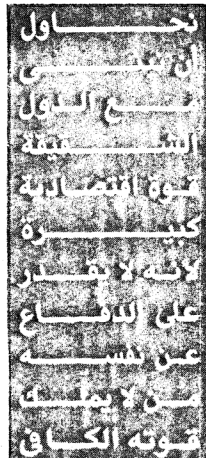 نحاول
أن نبني
مع الدول
الشقيقة
قوة اقتصادية
كبيرة
لانه لا يقدر
على الدفاع
عن نفسه
من لا يملك
قوته الكافى